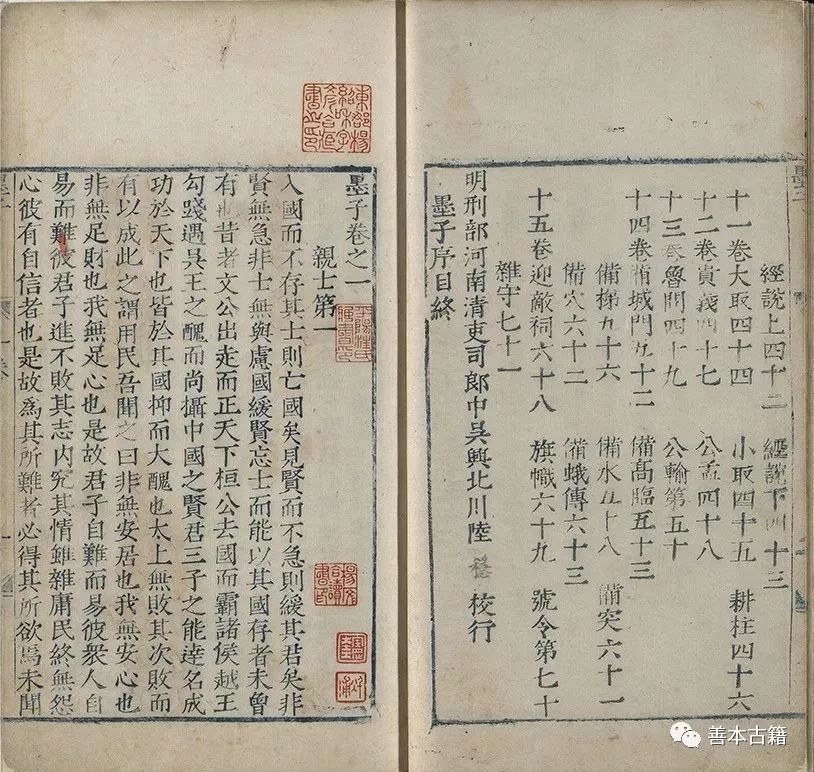 經說上四十二 經說下四十三
十一卷大取四十四 小取四十五 耕柱四十六
十二卷貴義四十七 公孟四十八
十三卷魯問四十九 公輸第五十
十四卷備城門五十二 備高臨五十三
備梯五十六 備水五十八 備突六十一
備穴六十二 備蛾傳六十三
十五卷迎敵祠六十八 旗幟六十九 號令第七十
雜守七十一
明刑部河南清吏司郎中吳興北川陸穩校行
墨子序目終
墨子卷之一
親士第一
入國而不存其士則亡國矣見賢而不急則緩其君矣非
賢無急非士無與慮國緩賢忘士而能以其國存者未曾
有也昔者文公出走而正天下桓公去國而霸諸侯越王
勾踐遇吳王之醜而尚攝中國之賢君三子之能逹名成
功於天下也皆於其國抑而大醜也太上無敗其次敗而
有以成此之謂用民吾聞之曰非無安居也我無安心也
非無足財也我無足心也是故君子自難而易彼衆人自
易而難彼君子進不敗其志內究其情雖雜庸民終無怨
心彼有自信者也是故爲其所難者必得其所欲焉未聞
墨子
卷一
善本古籍